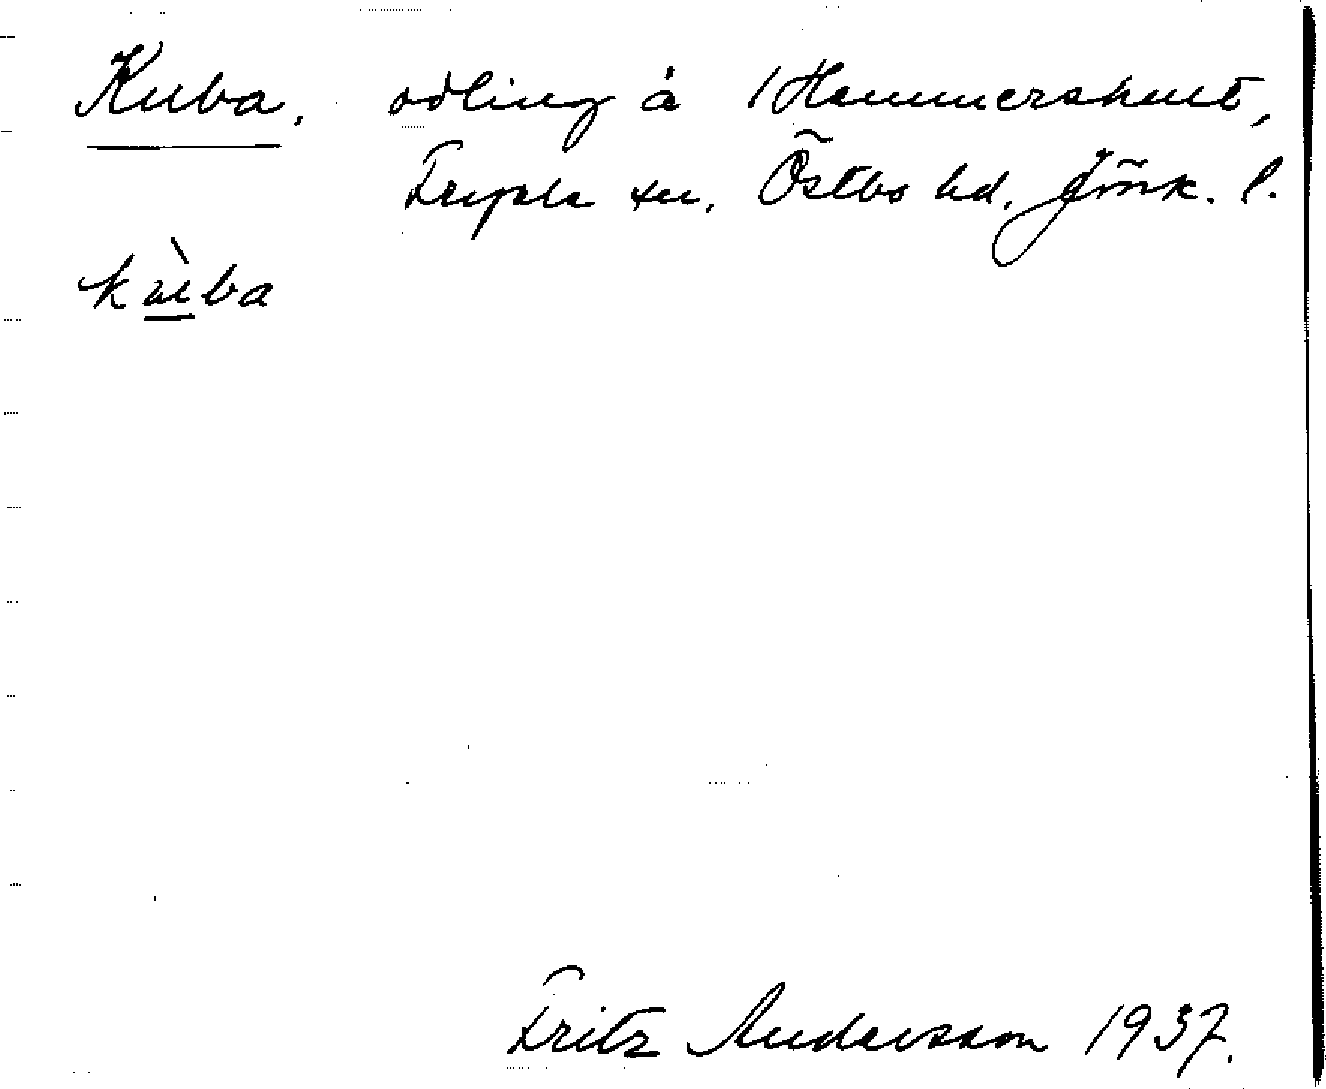 Kuba. odling å 1 Hammarshult,
Fryele sn. Östbo hd. Jönk. l.
kùba
Fritz Andersson 1937.